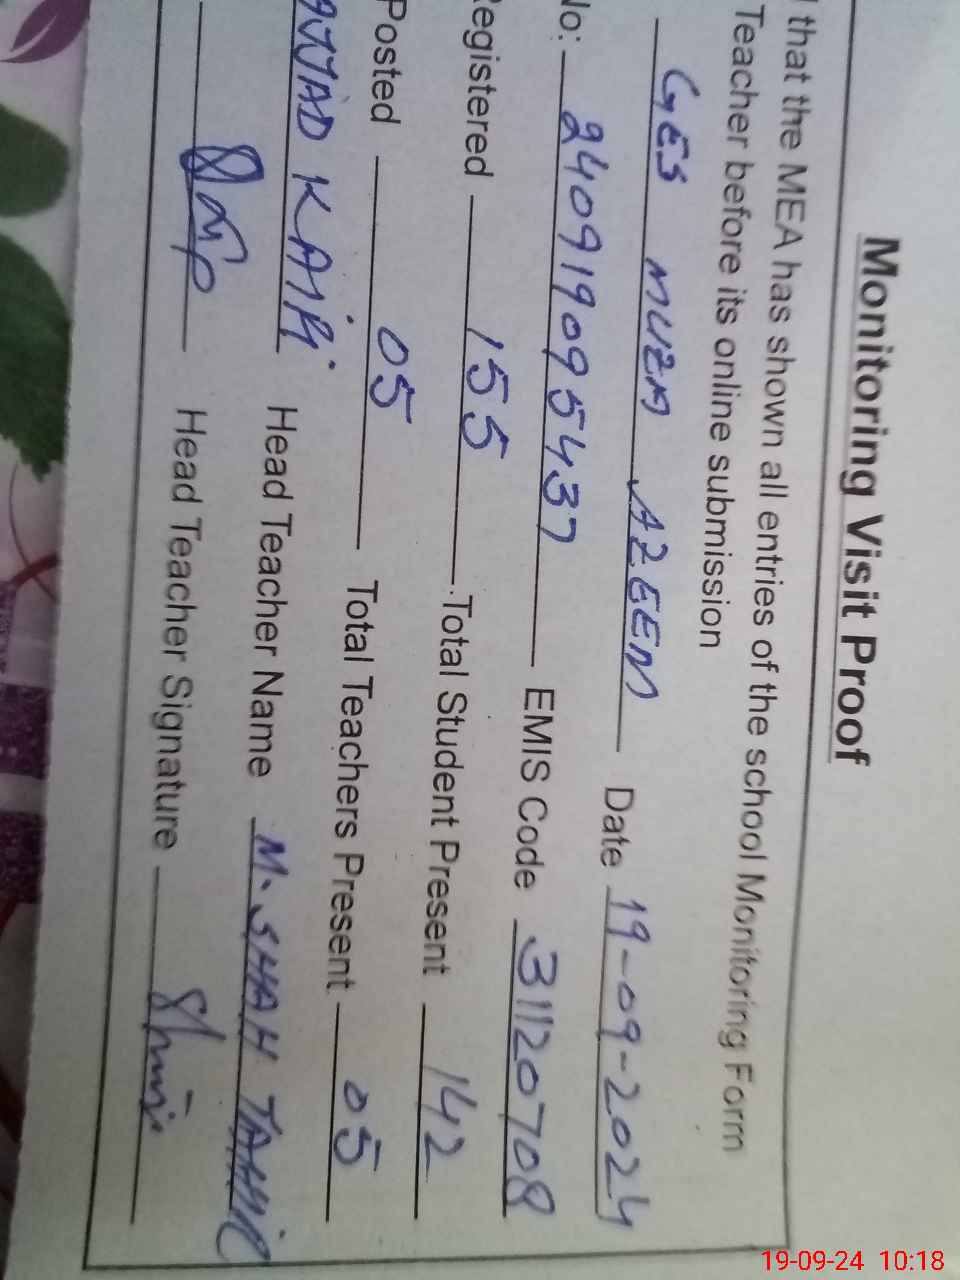 Monitoring Visit Proof
that the MEA has shown all entries of the school Monitoring Form
Teacher before its online submission
GES MUZM AZEEM Date 19-09-2024
No: 2409190955437 EMIS Code 31120708
egistered 155 Total Student Present 142
Posted 05 Total Teachers Present 05
KAIR Head Teacher Name M. SHAH
Head Teacher Signature
19-09-24 10:18